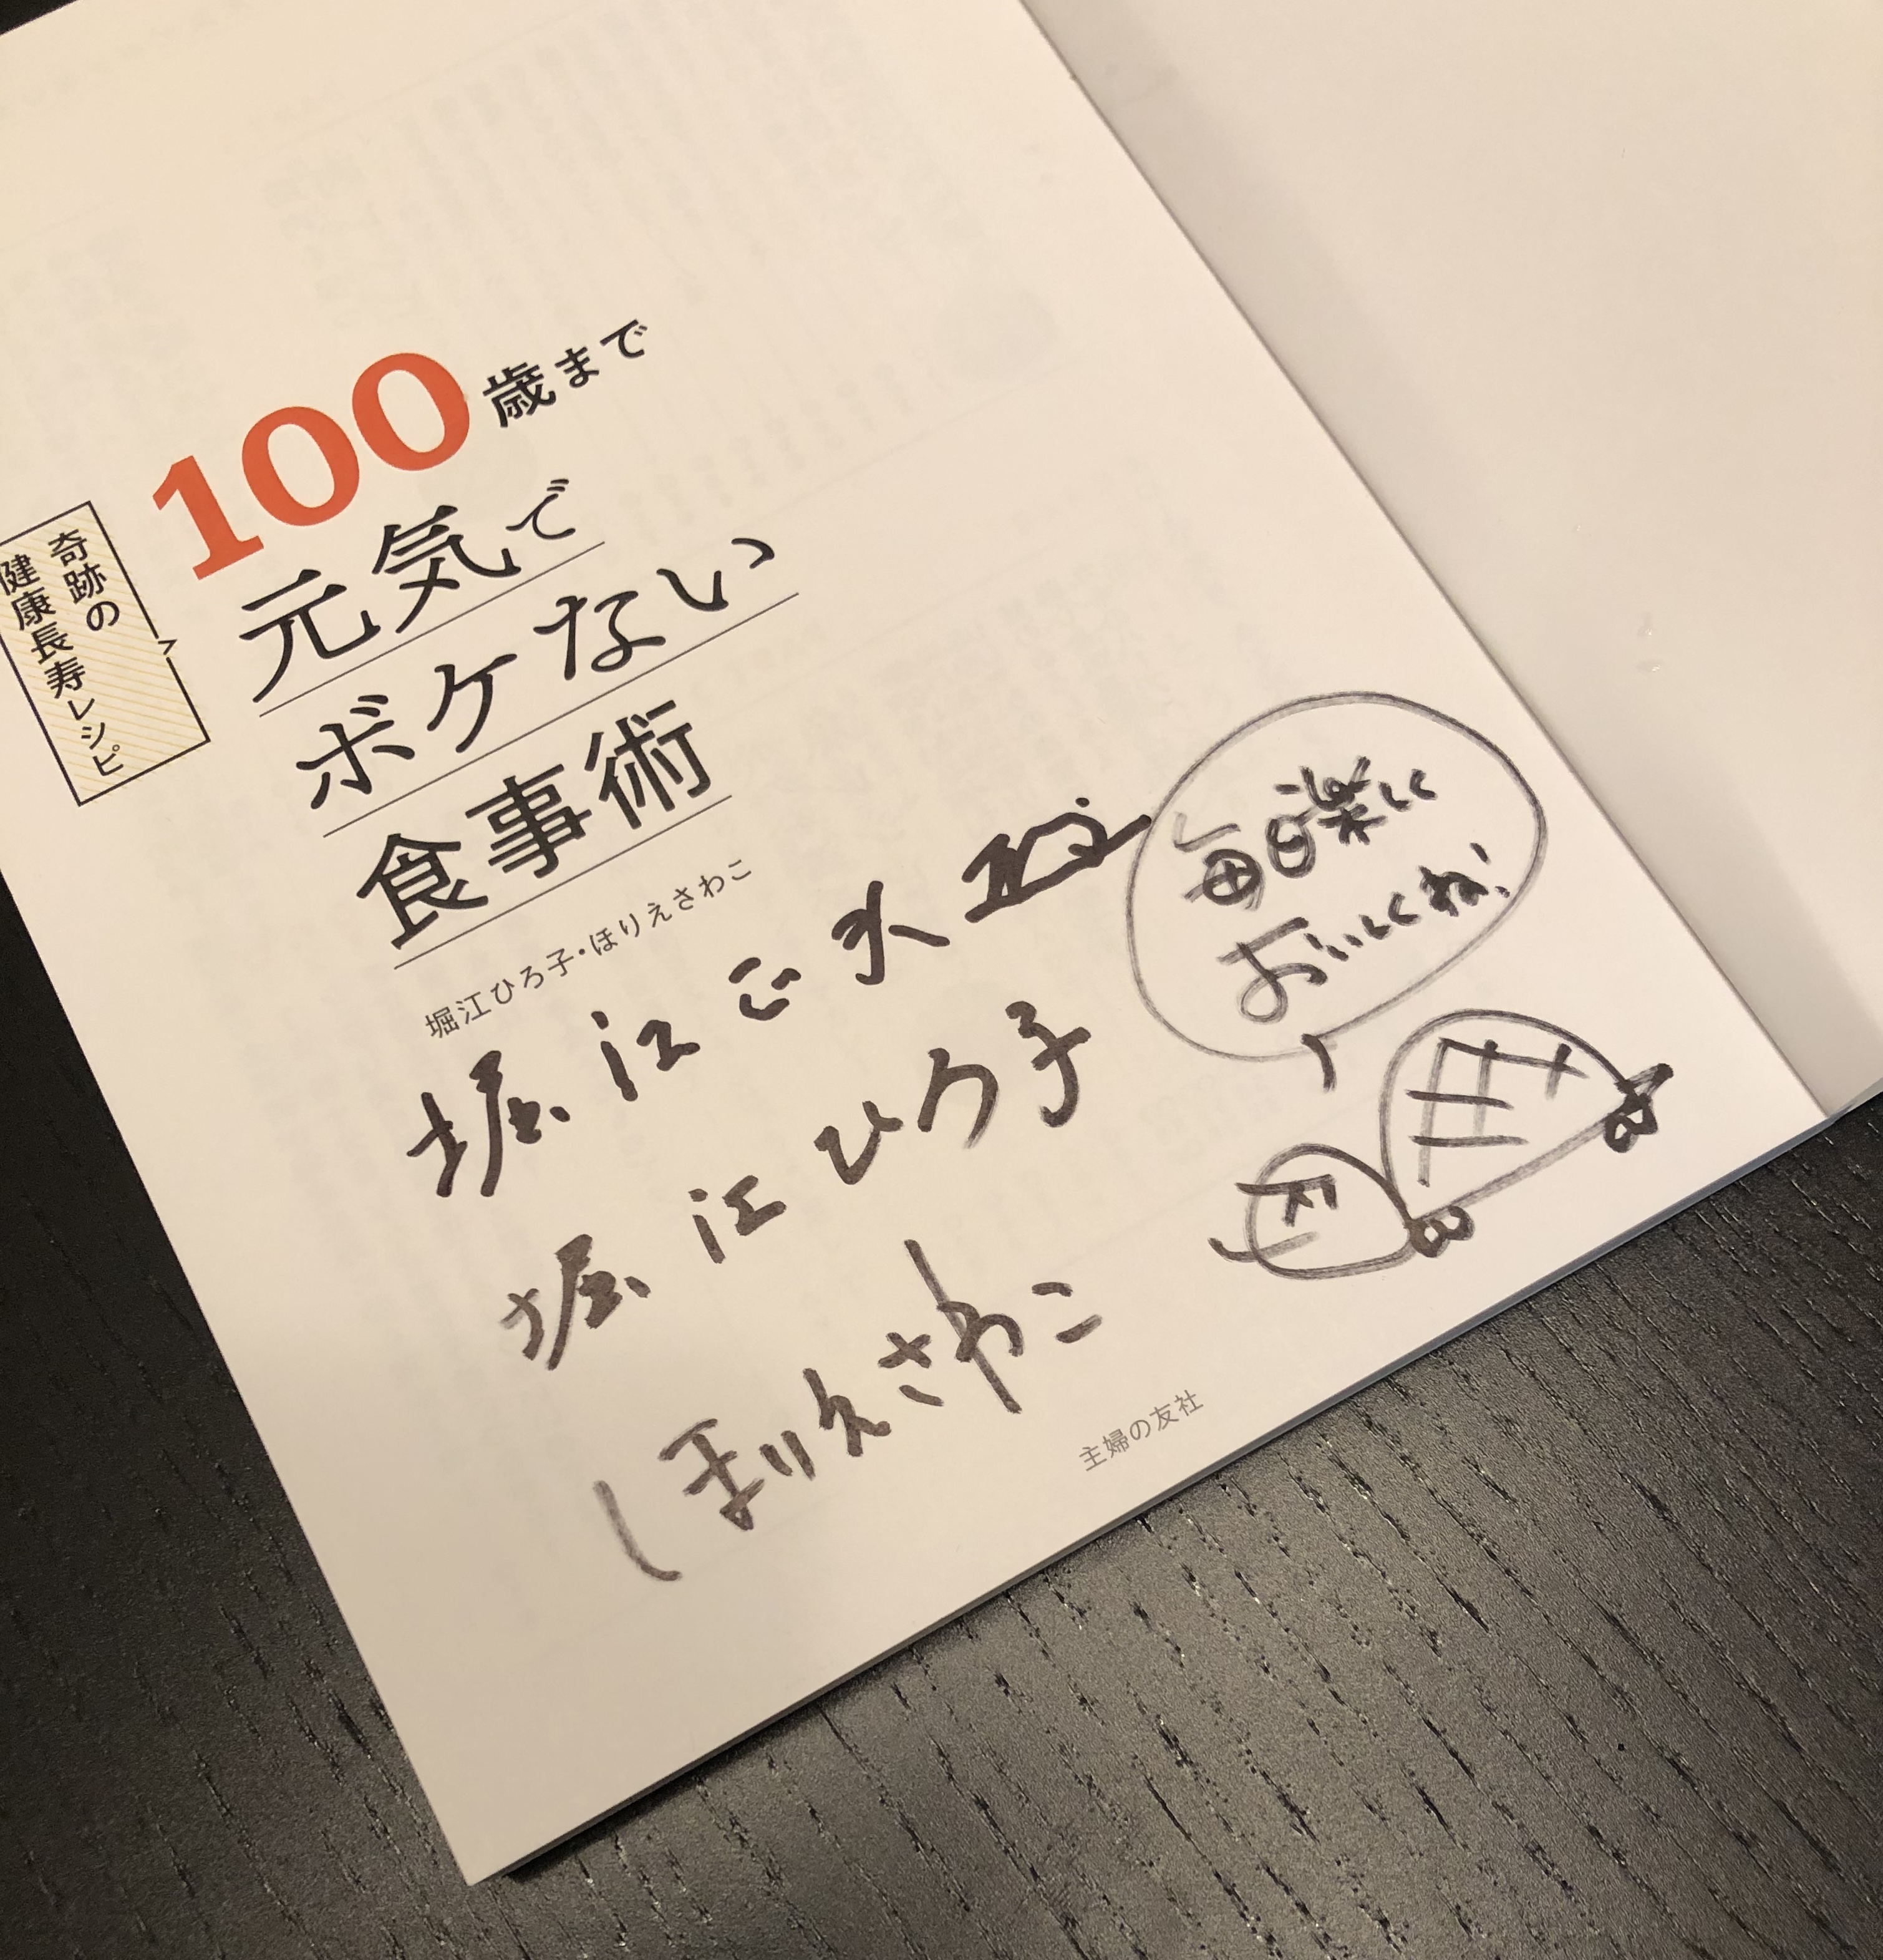 奇跡の
健康長寿レシピ
100歳まで
元気で
ボケない
食事術
堀江ひろ子・ほりえさわこ
堀江正夫
堀江ひろ子
ほりえさわこ
毎日楽しく
おいしくね!
主婦の友社